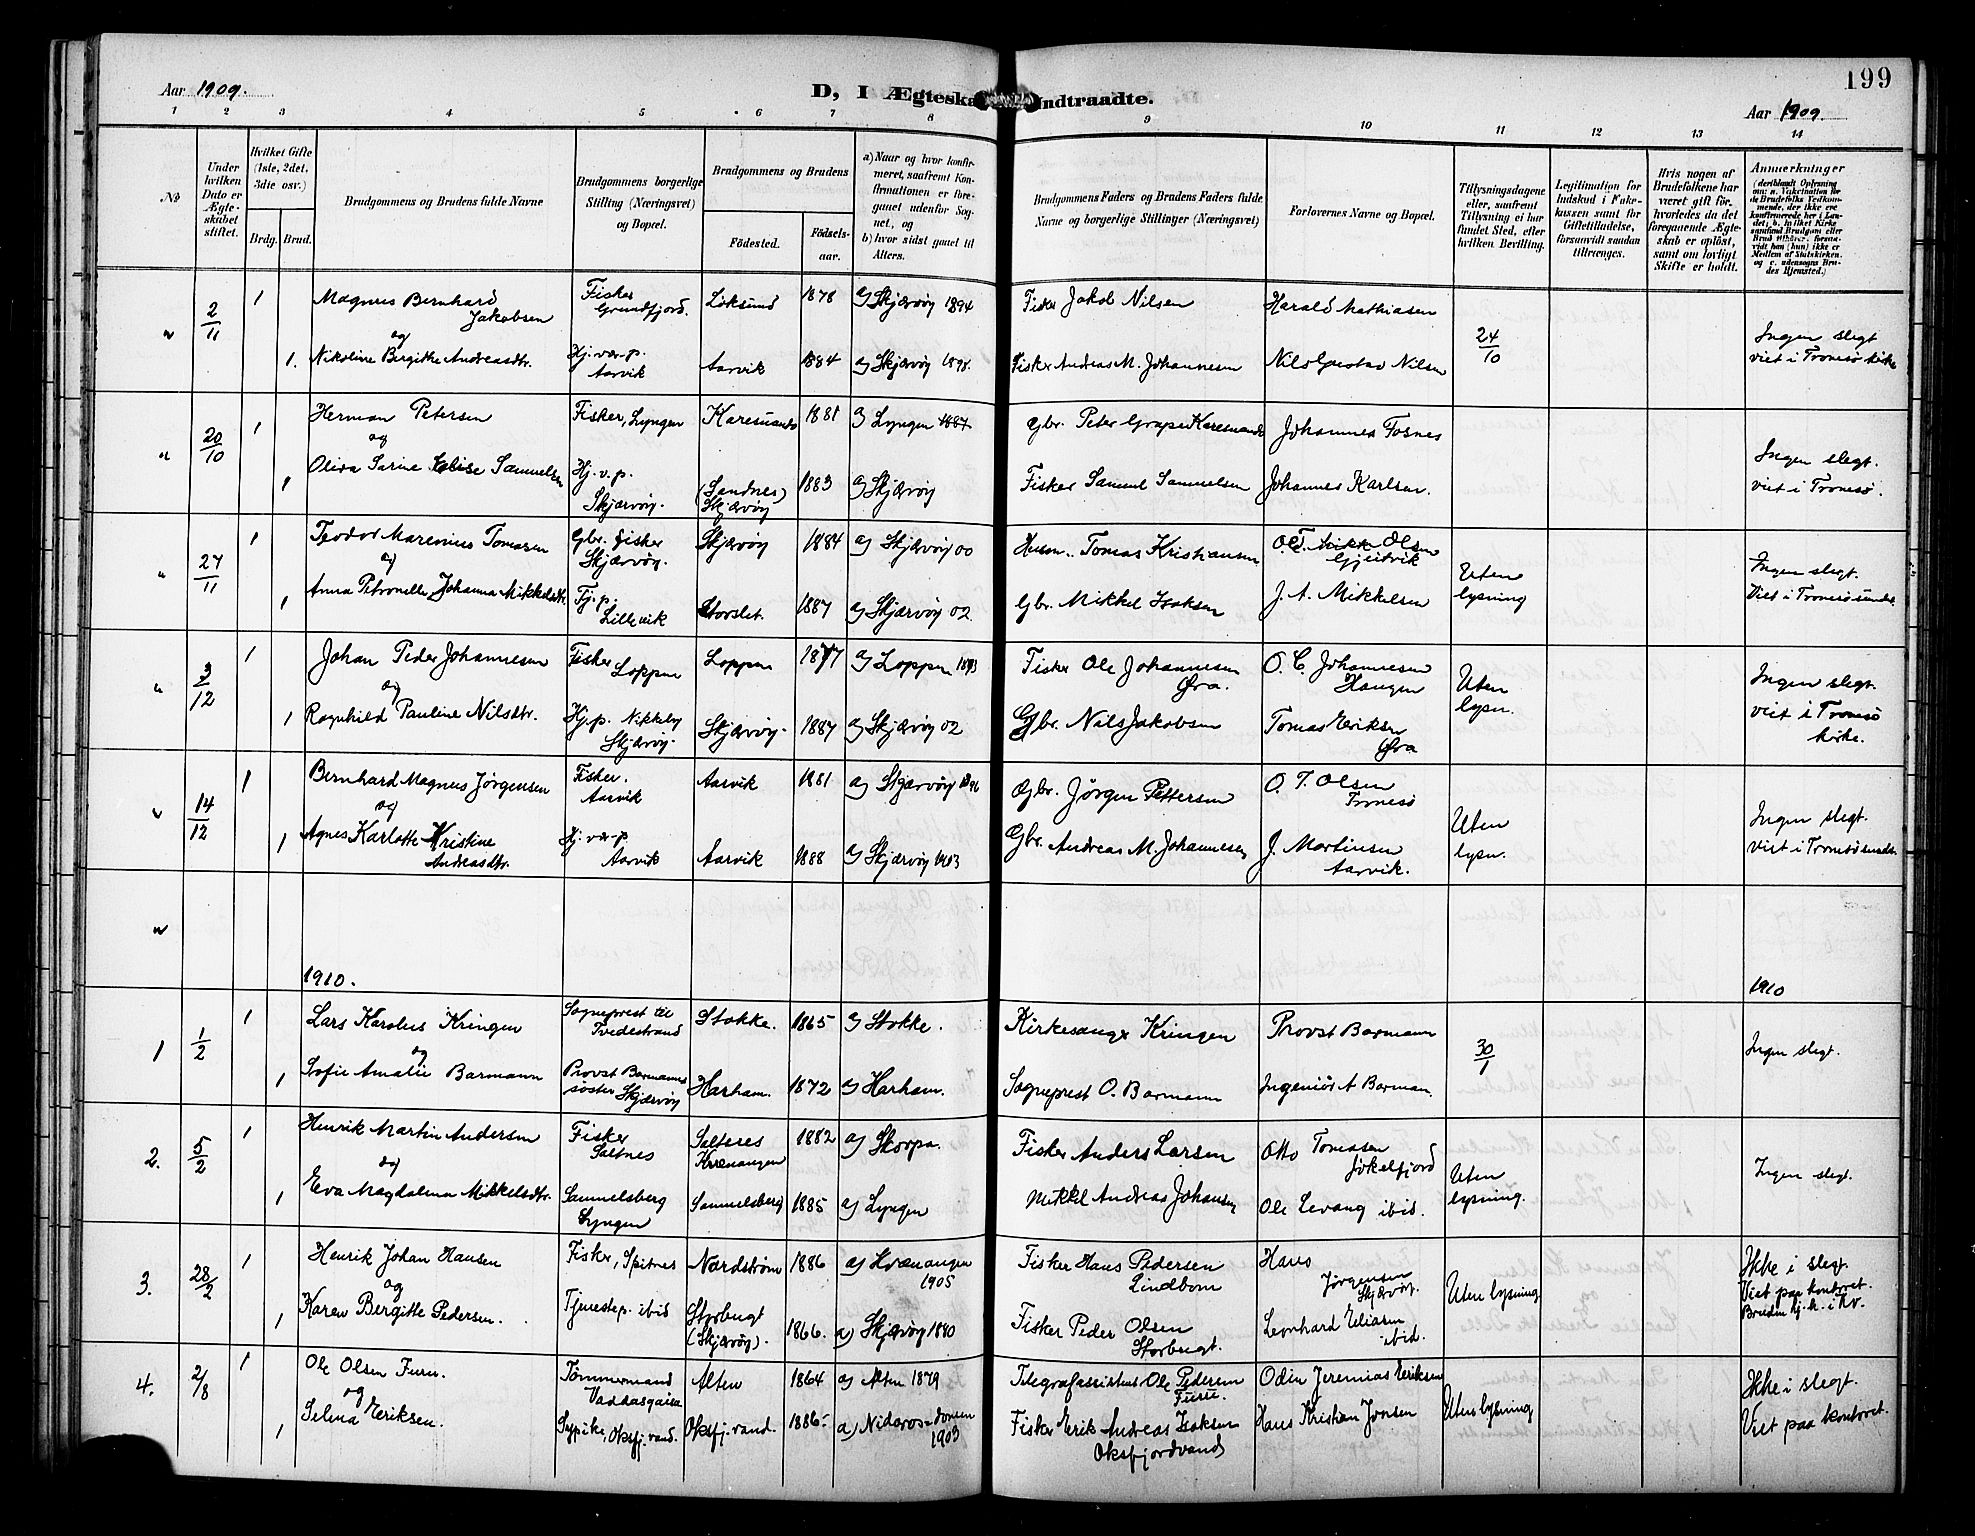 199
Aar 1909.
D, I Ægteska ndtraadte.
Aar 1909.
1 2 3 4 5 6 7 8 9 10 11 12 13 14
No
Under hvilken Dato er Ægteskabet stiftet.
Hvilket Gifte (1ste, 2det, 3die osv.)
Brdg. Brud.
Brudgommens og Brudens fulde Navne
Brudgommens borgerlige Stilling (Næringsvei) og Bopæl.
Brudgommens og Brudens
Fødested.
Fødselsaar.
a) Naar og hvor konfirmeret, saafremt Konfirmationen er foregaaet udenfor Sognet, og
b) hvor sidst gaaet til Alters.
Brudgommens Faders og Brudens Faders fulde Navne og borgerlige Stillinger (Næringsvei)
Forlovernes Navne og Bopæl.
Tillysningsdagene eller, saafremt Tillysning ei har fundet Sted, efter hvilken Bevilling.
Legitimation for Indskud i Enkekassen samt for Giftetilladelse, forsaavidt saadan tiltrænges.
Hvis nogen af Brudefolkene har været gift før, hvorledes da det foregaaende Ægteskab er opløst, samt om lovligt Skifte er holdt.
Anmærkninger
" 2/11 1 Magnus Bernhard Jakobsen Fisker Grundfjord. Løksund 1878 a) Skjærvöy 1894 Fisker Jakob Nilsen Harald Mathiasen 24/10 Ingen slegt
og
1. Nikoline Bergitte Andreasdtr. Hj. vær. p. Aarvik Aarvik 1884 a) Skjærvöy 1898. Fisker Andreas M. Johannesen Nils Gustav Nilsen viet i Tromsø kirke
" 20/10 1 Herman Petersen Fisker, Lyngen Karesuando 1881 a) Lyngen 1887 Gbr. Peter Grape Karesuando Johannes Fosnes Ingen slegt.
og
1 Oliva Sarine Elise Samuelsen Hj. v. p. Skjærvöy. (Sandnes) Skjærvöy 1883 a) Skjærvöy Fisker Samuel Samuelsen Johannes Karlsen. viet i Tromsø.
" 27/11 1 Teodor Marenius Tomasen Gbr. fisker Skjærvöy. Skjærvöy 1884 a) Skjærvöy 00 Husm. Tomas Kristiansen Olsen Gjeitvik Uten lysning Ingen slegt.
og
1 Anna Petronelle Johanna Mikkelsdtr. Tj. p. Lillevik Storslet. 1887 a) Skjærvöy 02. Gbr. Mikkel Isaksen J. A. Mikkelsen Viet i Tromsøsundet
" 3/12 1 Johan Peder Johannesen Fisker Loppen Loppen 1877 a) Loppen 1893 Fisker Ole Johannesen Øra. O. C. Johannesen Haugen Uten lysn. Ingen slegt.
og
1 Ragnhild Pauline Nilsdtr. Hj. p. Nikkeby Skjærvöy. Skjærvöy. 1887 a) Skjærvöy 02 Gbr. Nils Jakobsen Tomas Eriksen Øra viet i Tromsø kirke.
" 14/12 1 Bernhard Magnus Jørgensen Fisker. Aarvik Aarvik 1881 a) Skjærvöy 1896 Gbr. Jørgen Pettersen O. T. Olsen Tromsø Uten lysn. Ingen slegt.
og
1 Agnes Karlotte Kristine Andreasdtr. Hj. vær. p Aarvik Aarvik 1888 a) Skjærvöy 1903 Gbr. Andreas M. Johannesen J. Martinsen Aarvik. viet i Tromsøsundet.
"
1910. 1910
1 1/2 1 Lars Karolus Kringen Sogneprest til Tvedestrand Stokke. 1865 a) Stokke. Kirkesanger Kringen Provst Bormann 30/1 Ingen slegt.
og
1 Sofie Amalie Bormann Provst Bormanns søster Skjærvöy Harham. 1872 a) Harham. Sogneprest O. Bormann Ingeniør A Borman.
2. 5/2 1 Henrik Martin Andersen Fisker Saltnes Saltnes Kvænangen 1882 a) Skorpa. Fisker Anders Larsen Otto Tomassen Jøkelfjord Uten lysning. Ingen slegt.
og
1 Eva Magdalena Mikkelsdtr. Samuelsberg Lyngen Samuelsberg 1885 a) Lyngen Mikkel Andreas Johansen Ole Levang ibid.
3. 28/2 1 Henrik Johan Hansen Fisker, Spitnes Nordstrøm 1886 a) Kvænangen 1905 Fisker Hans Pedersen Lindbom Hans Jørgensen Skjærvöy. Uten lysning Ikke i slegt. Viet paa kontoret.
og
1 Karen Bergitte Pedersen. Tjenestep. ibid Storbugt (Skjærvöy). 1866. a) Skjærvöy 1880 Fisker Peder Olsen Storbugt. Leonhard Eliasen ibid. Bruden hj. h. i Kv.
4. 2/8 1 Ole Olsen Furu. Tømmermand Vaddasgaisa Alten 1864 a) Alten 1879 Telegrafassistent Ole Pedersen Furu. Odin Jeremias Eriksen Uten lysning Ikke i slegt.
og
1 Selma Eriksen. Sypike, Oksfj. vand. Oksfj. vand. 1886. a) Nidaros-domen 1903 Fisker Erik Andreas Isaksen Oksfjordvand Hans Kristian Jonsen Viet paa kontoret.